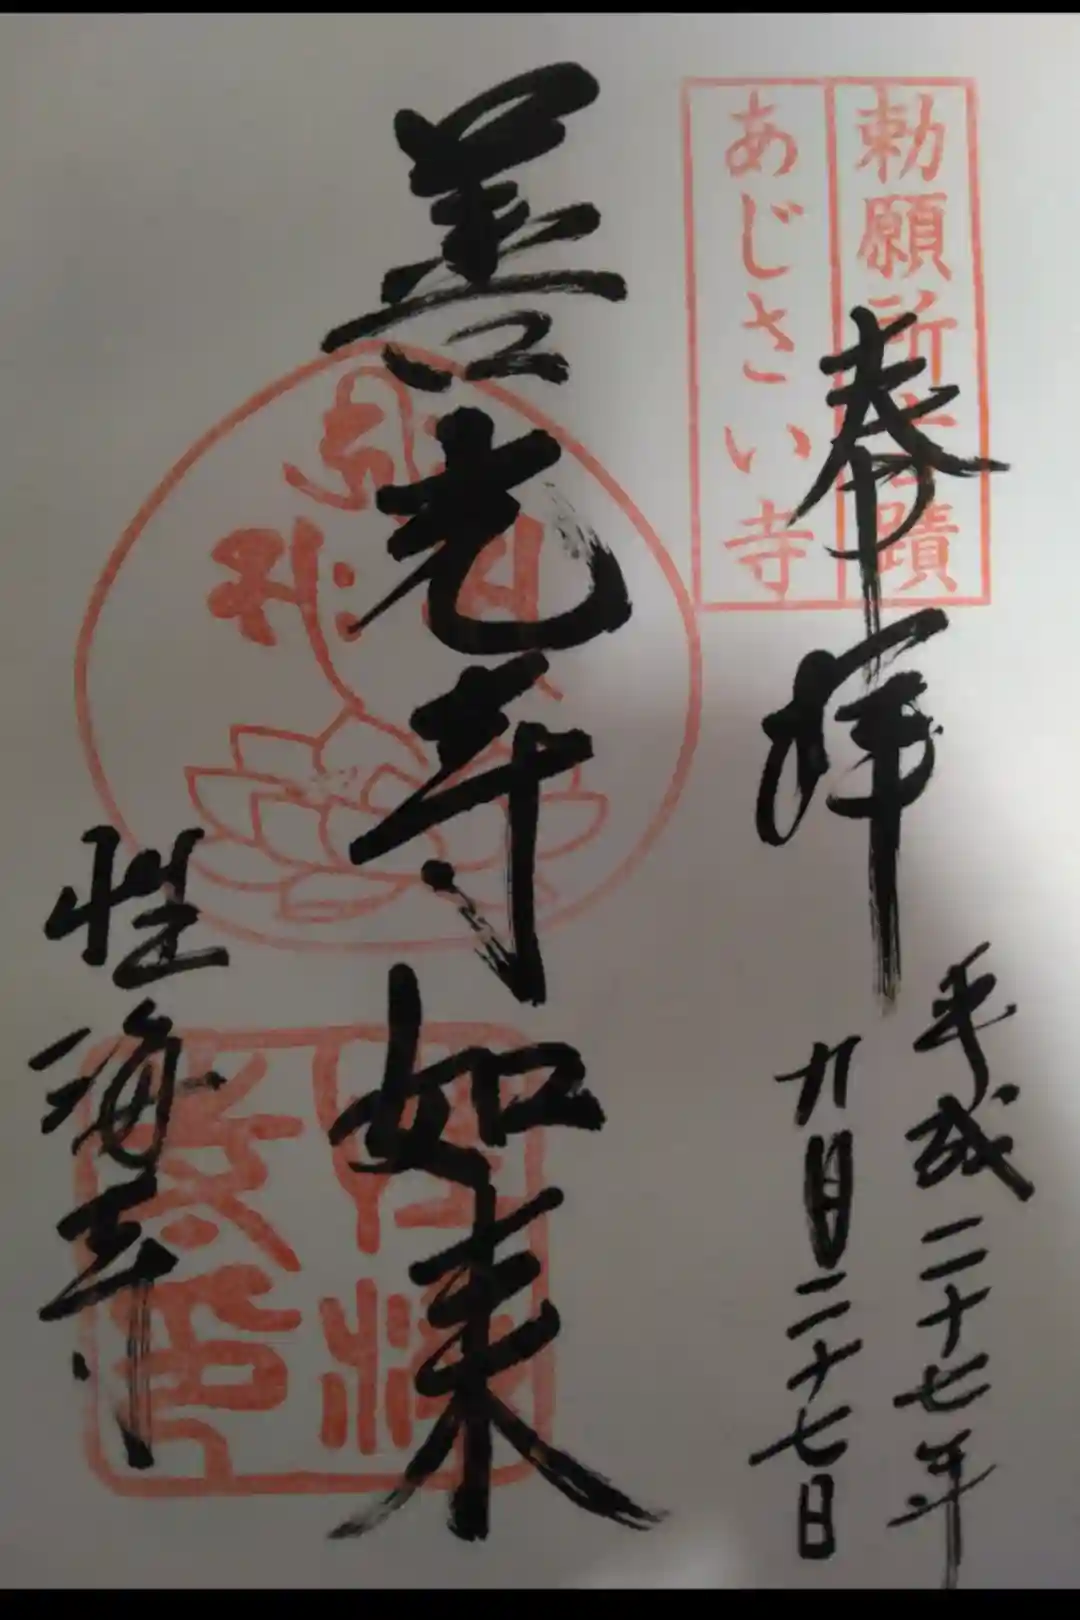 勅願所
蹟
あじさい寺
奉拝
平成二十七年
九月二十七日
善光寺如来
性海寺